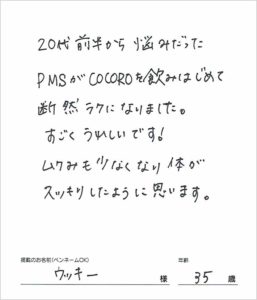 20代前半から悩みだった
PMSがCOCOROを飲みはじめて
断然ラクになりました。
すごくうれしいです!
ムクみも少なくなり体が
スッキリしたように思います。
掲載のお名前(ペンネームOK) 年齢
ウッキー 様 35 歳